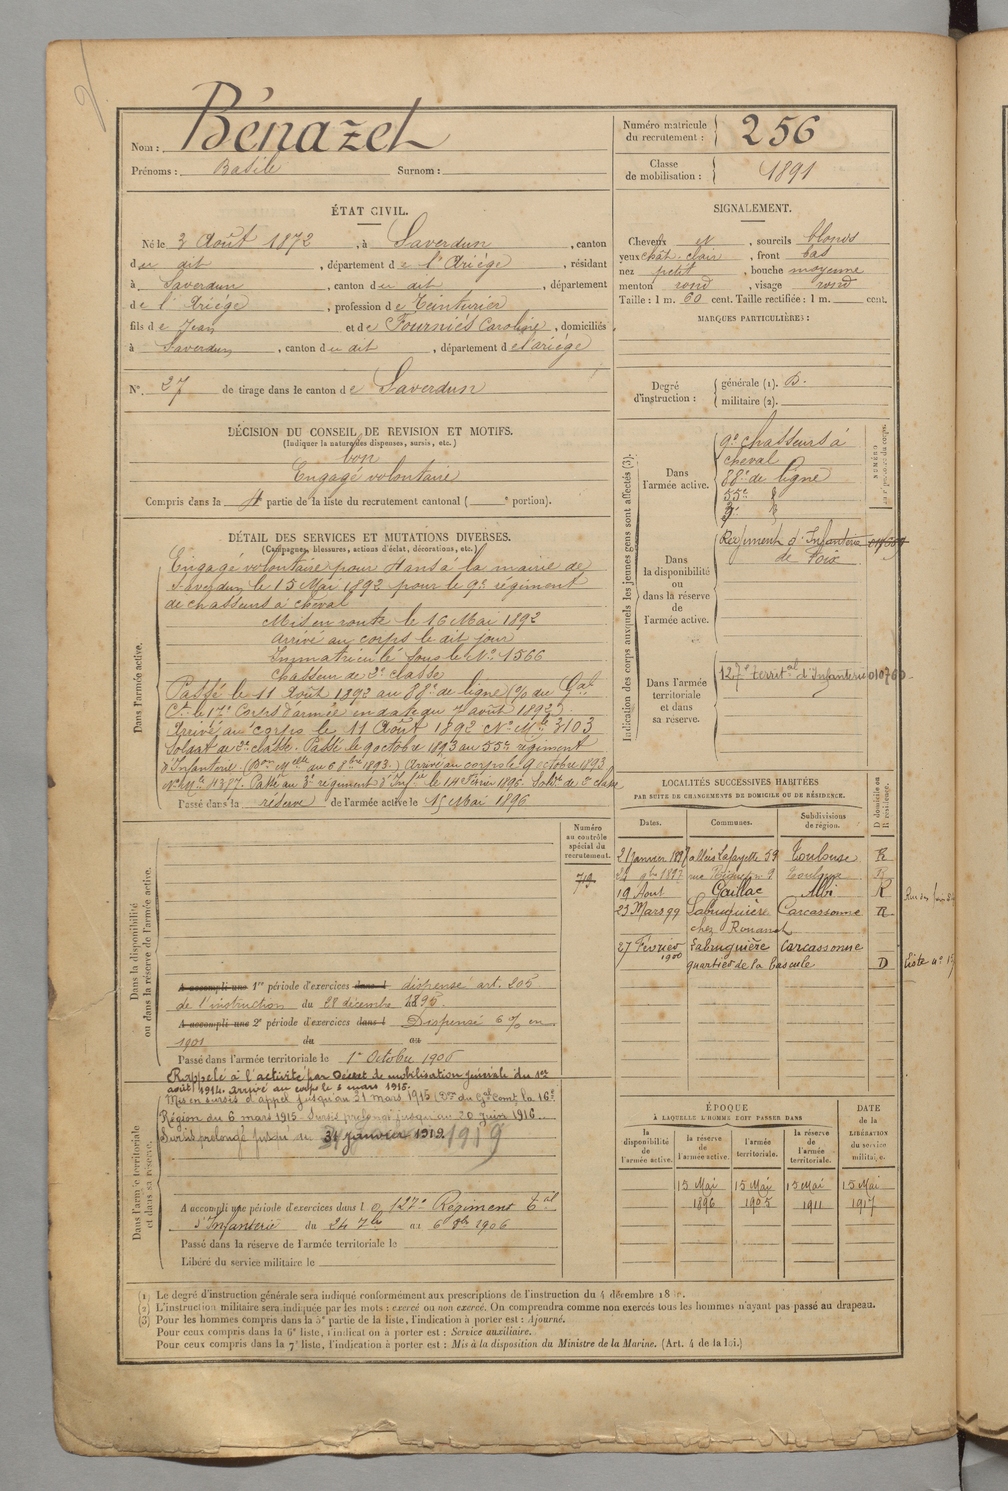 Nom : Bénazet
Prénoms : Basile Surnom :
Numéro matricule du recrutement : 256
Classe de mobilisation : 1891
ÉTAT CIVIL.
Né le 3 Août 1872, à Saverdun, canton
du dit, département de l'Ariége, résidant
à Saverdun, canton du dit, département
de l'Ariége, profession de Teinturier
fils de Jean et de Fourniés Caroline, domiciliés
à Saverdun, canton du dit, département de l'ariége
N°. 27 de tirage dans le canton de Saverdun
SIGNALEMENT.
Cheveux et, sourcils blonds
yeux chât. clair, front bas
nez petit, bouche moyenne
menton rond, visage rond
Taille : 1 m. 60 cent. Taille rectifiée : 1 m. cent.
MARQUES PARTICULIÈRES :
Degré d'instruction : générale (1). 3.
militaire (2).
DÉCISION DU CONSEIL DE REVISION ET MOTIFS.
(Indiquer la nature des dispenses, sursis, etc.)
bon
Engagé volontaire
Compris dans la 4 partie de la liste du recrutement cantonal ( e portion).
DÉTAIL DES SERVICES ET MUTATIONS DIVERSES.
(Campagnes, blessures, actions d'éclat, décorations, etc.)
Dans l'armée active.
Engagé volontaire pour 4 ans à la mairie de
Saverdun le 15 Mai 1892 pour le 9e régiment
de chasseurs à cheval
Mis en route le 16 Mai 1892
arrivé au corps le dit jour
Immatriculé sous le N° 1566
chasseur de 2e classe
Passé le 11 Août 1892 au 88e de ligne (% du Gal
Ct le 17e Corps d'armée en date du 7 août 1892)
Arrivé au corps le 11 Août 1892 N° Mle 3103
Soldat de 2e classe. Passé le 9 octobre 1893 au 55e régiment
d'Infanterie. (Bon Melle du 6 8bre 1893.) Arrivé au corps le 9 octobre 1893
N° Mle 4387. Passé au 3e régiment d'Infie le 14 Févrir 1896. Soldt de 2e classe
Passé dans la réserve de l'armée active le 15 Mai 1896
Indication des corps auxquels les jeunes gens sont affectés (3).
NUMÉRO
Dans l'armée active.
9e chasseurs à
cheval
88e de ligne
55e d°
3e d°
Dans la disponibilité ou dans la réserve de l'armée active.
Régiment d'Infanterie
de Foix
Dans l'armée territoriale et dans sa réserve.
127e territal d'Infanterie 010760
LOCALITÉS SUCCESSIVES HABITÉES
PAR SUITE DE CHANGEMENTS DE DOMICILE OU DE RÉSIDENCE.
Dates. Communes. Subdivisions de région. D domicile ou R résidence.
21 Janvier 1897 allées Lafayette 59 Toulouse R
9bre 1897 rue 9 Toulouse R
19 Aout Gaillac Albi R
23 Mars 99 Labruguière Carcassonne R
chez
27 Février 1900 Labruguière Carcassonne
quartier de la bascule D
Liste n°
Numéro au contrôle spécial du recrutement.
719
Dans la disponibilité ou dans la réserve de l'armée active.
A accompli une 1re période d'exercices dans l dispense art. 205
de l'instruction du 28 décembre 1895
A accompli une 2e période d'exercices dans l Dispensé 6 % en
1901 du au
Passé dans l'armée territoriale le 1er Octobre 1906
Rappelé à l'activité par Décret de mobilisation générale du 1er
août 1914. Arrivé au corps le 5 mars 1915.
Dans l'armée territoriale et dans sa réserve.
Mis en sursis d'appel jusqu'au 31 mars 1915 (Don du Gal Comt la 16e
Région du 6 mars 1915 Sursis prolongé jusqu'au 20 juin 1916
Sursis prolongé jusqu'au 31 janvier 1919. 1919
A accompli une période d'exercices dans l e 127e Régiment Tal
d'Infanterie du 24 7bre au 6 8bre 1906
Passé dans la réserve de l'armée territoriale le
Libéré du service militaire le
ÉPOQUE À LAQUELLE L'HOMME DOIT PASSER DANS
DATE de la LIBÉRATION du service militaire.
la disponibilité de l'armée active. la réserve de l'armée active. l'armée territoriale. la réserve de l'armée territoriale.
15 Mai 15 Mai 15 Mai 15 Mai
1896 1905 1911 1917
(1) Le degré d'instruction générale sera indiqué conformément aux prescriptions de l'instruction du 4 décembre
(2) L'instruction militaire sera indiquée par les mots : exercé ou non exercé. On comprendra comme non exercés tous les hommes n'ayant pas passé au drapeau.
(3) Pour les hommes compris dans la 5e partie de la liste, l'indication à porter est : Ajourné.
Pour ceux compris dans la 6e liste, l'indication à porter est : Service auxiliaire.
Pour ceux compris dans la 7e liste, l'indication à porter est : Mis à la disposition du Ministre de la Marine. (Art. 4 de la loi.)